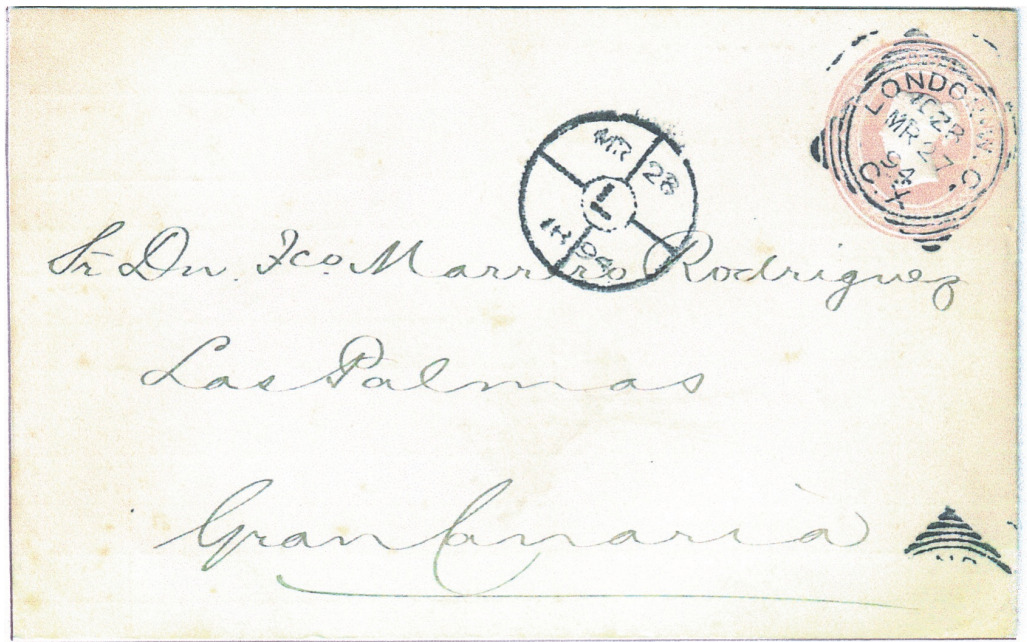 LONDON.W.C.
MR 27
94
C.X
MR 28
L
94
Sr. Dn. Fco. Marrero Rodriguez
Las Palmas
Gran Canaria